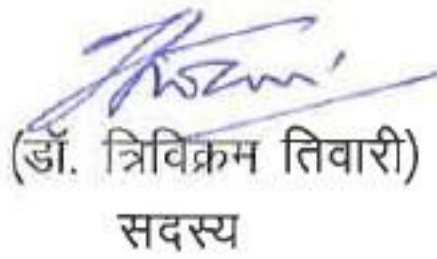 (डॉ. त्रिविक्रम तिवारी)
सदस्य